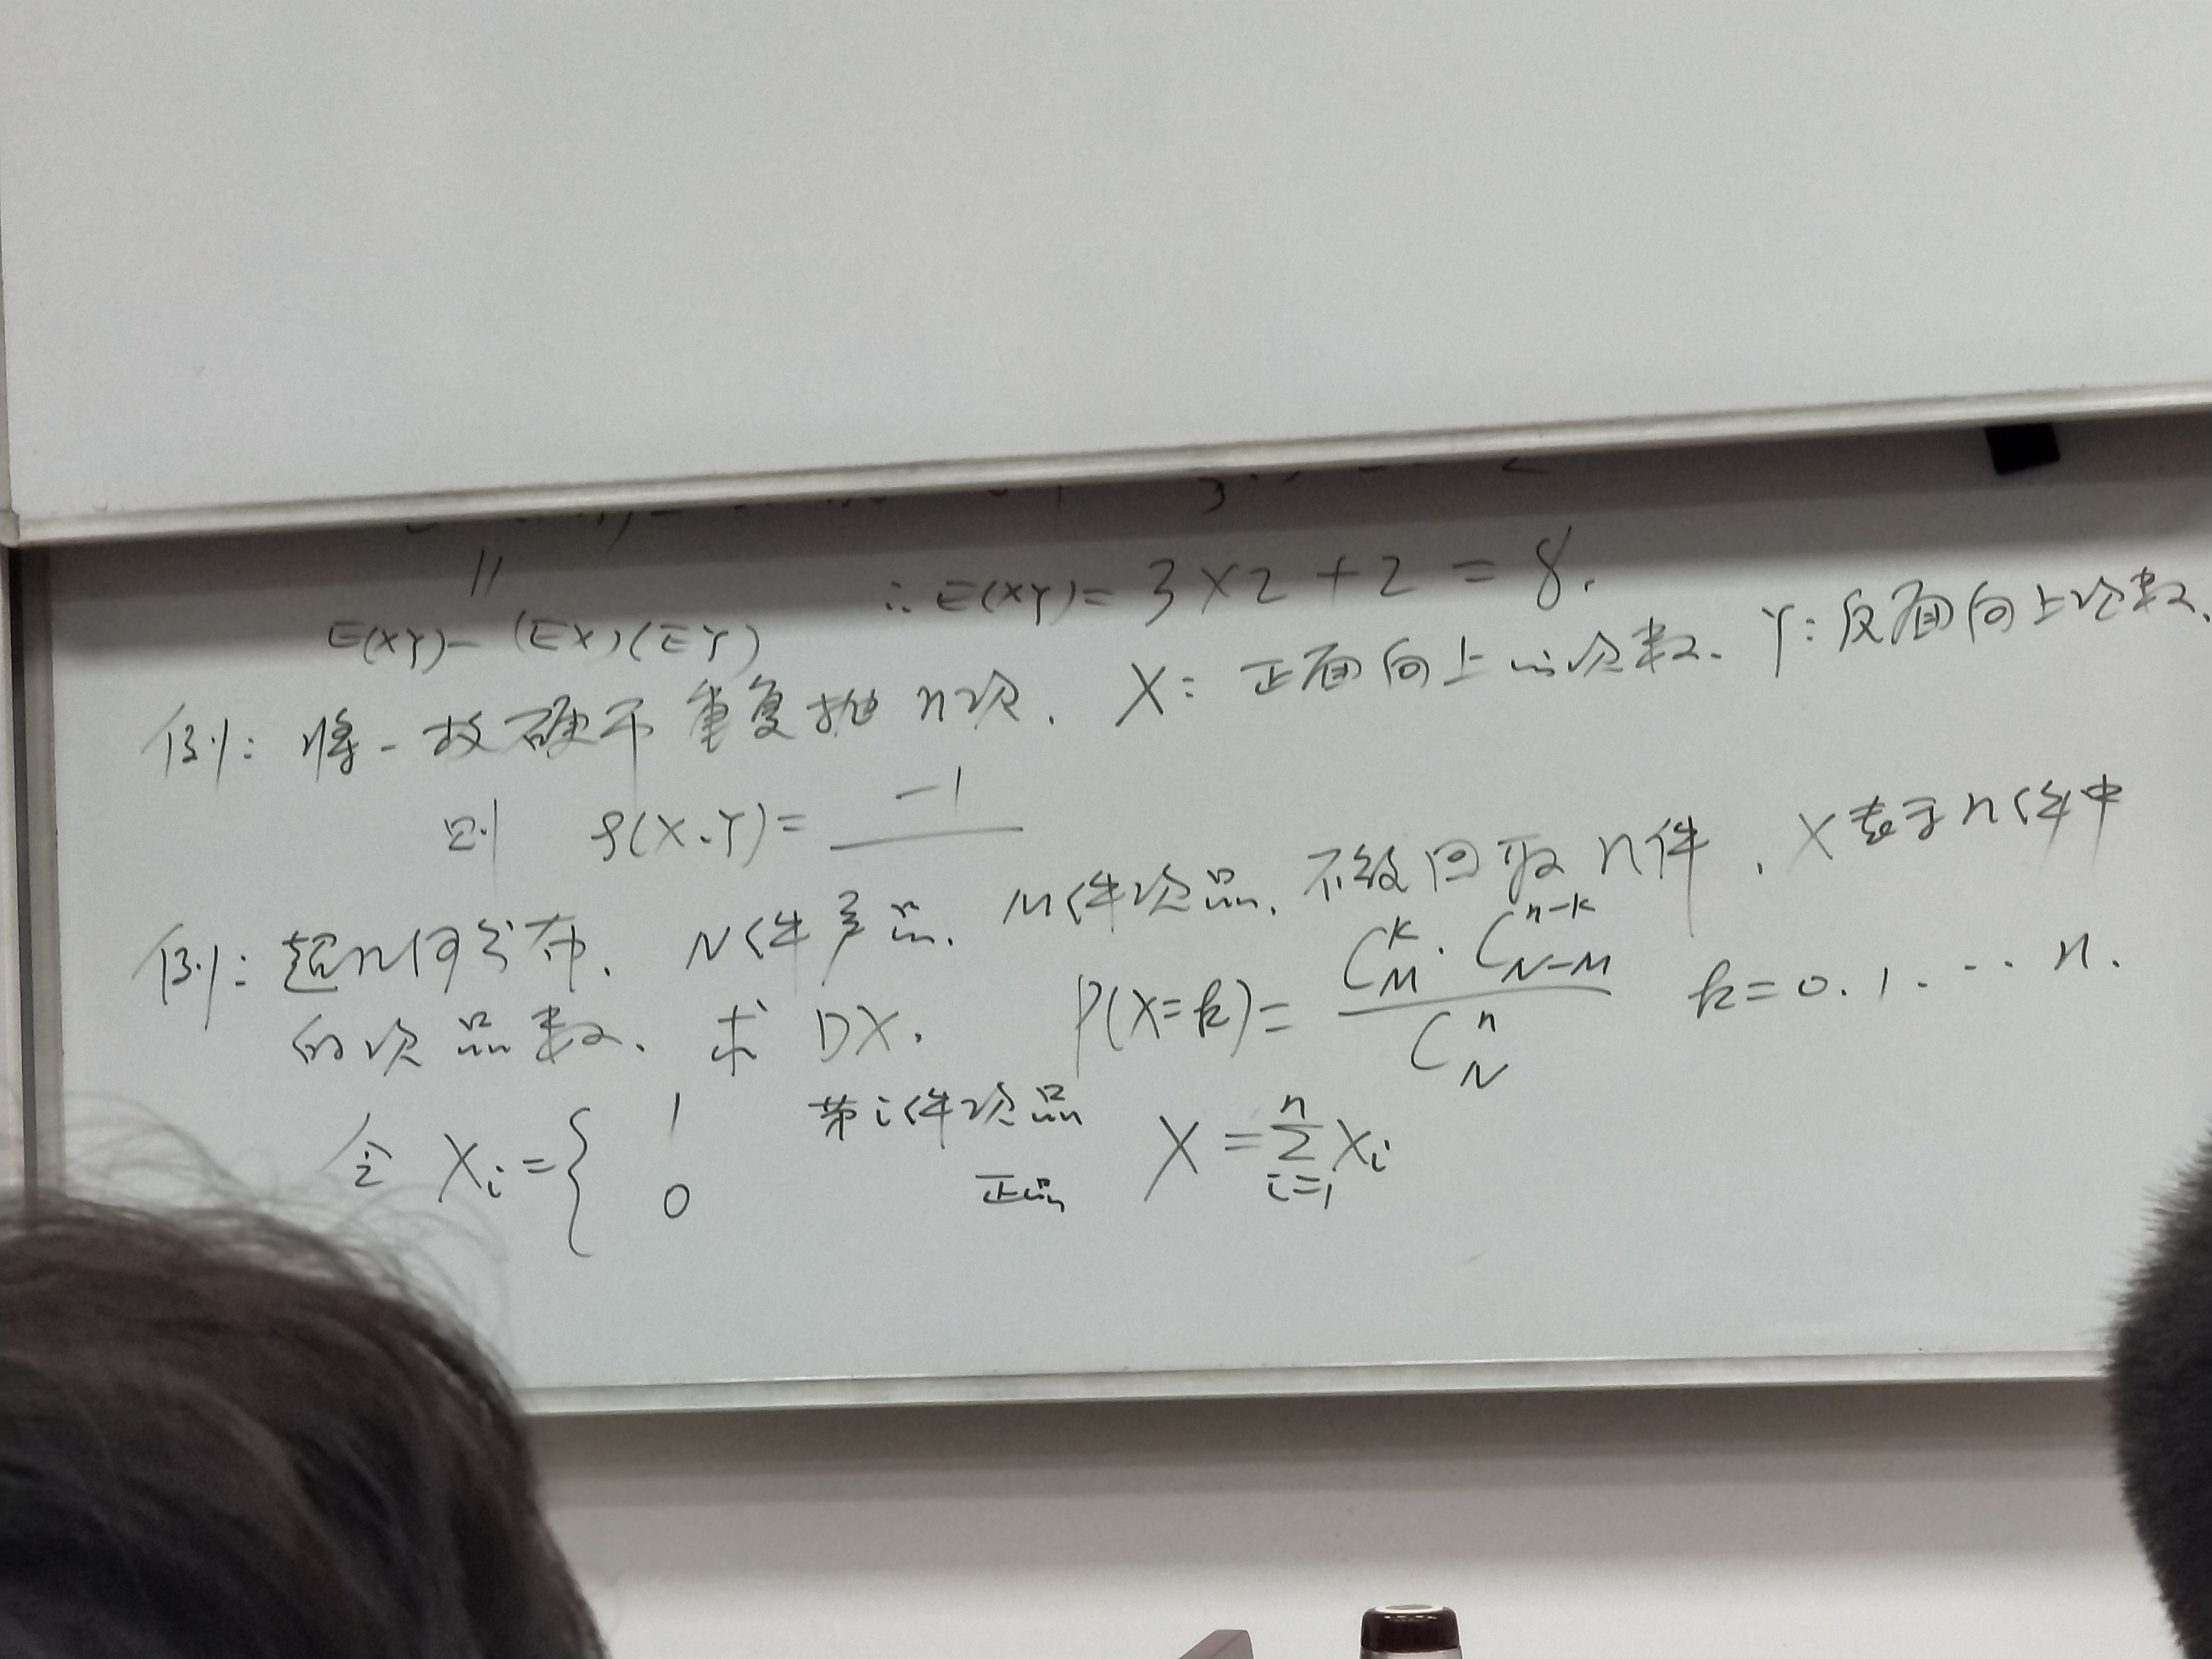 ||
E(XY)-(EX)(EY) ∴E(XY)=3×2+2=8.
例: 将一枚硬币重复抛n次. X: 正面向上的次数. Y: 反面向上次数.
则 ρ(X.Y)= -1
例: 超几何分布. N件产品. M件次品. 不放回取n件. X表示n件中
的次品数. 求DX. P(X=k)= C_M^k·C_{N-M}^{n-k} / C_N^n k=0.1.…n.
令 X_i={ 1 第i件次品
0 正品 X=∑_{i=1}^{n}X_i